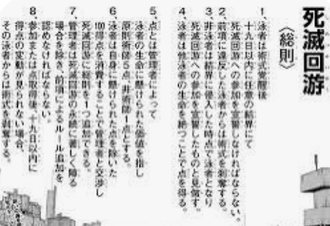 死滅回游
〈総則〉
1、泳者は術式覚醒後
十九日以内に任意の結界にて
死滅回游への参加を宣誓しなければならない。
2、前項に違反した泳者からは術式を剥奪する。
3、非泳者は結界に侵入した時点で泳者となり
死滅回游への参加を宣誓したものと見做す。
4、泳者は他泳者の生命を絶つことで点を得る。
5、点とは管理者によって
泳者の生命に懸けられた価値を指し
原則術師5点、非術師1点とする。
6、泳者は自身に懸けられた点を除いた
100得点を消費することで管理者と交渉し
死滅回游に総則を1つ追加できる。
7、管理者は死滅回游の永続に著しく障る
場合を除き、前項によるルール追加を
認めなければならない。
8、参加または点取得後、十九日以内に
得点の変動が見られない場合、
その泳者からは術式を剥奪する。